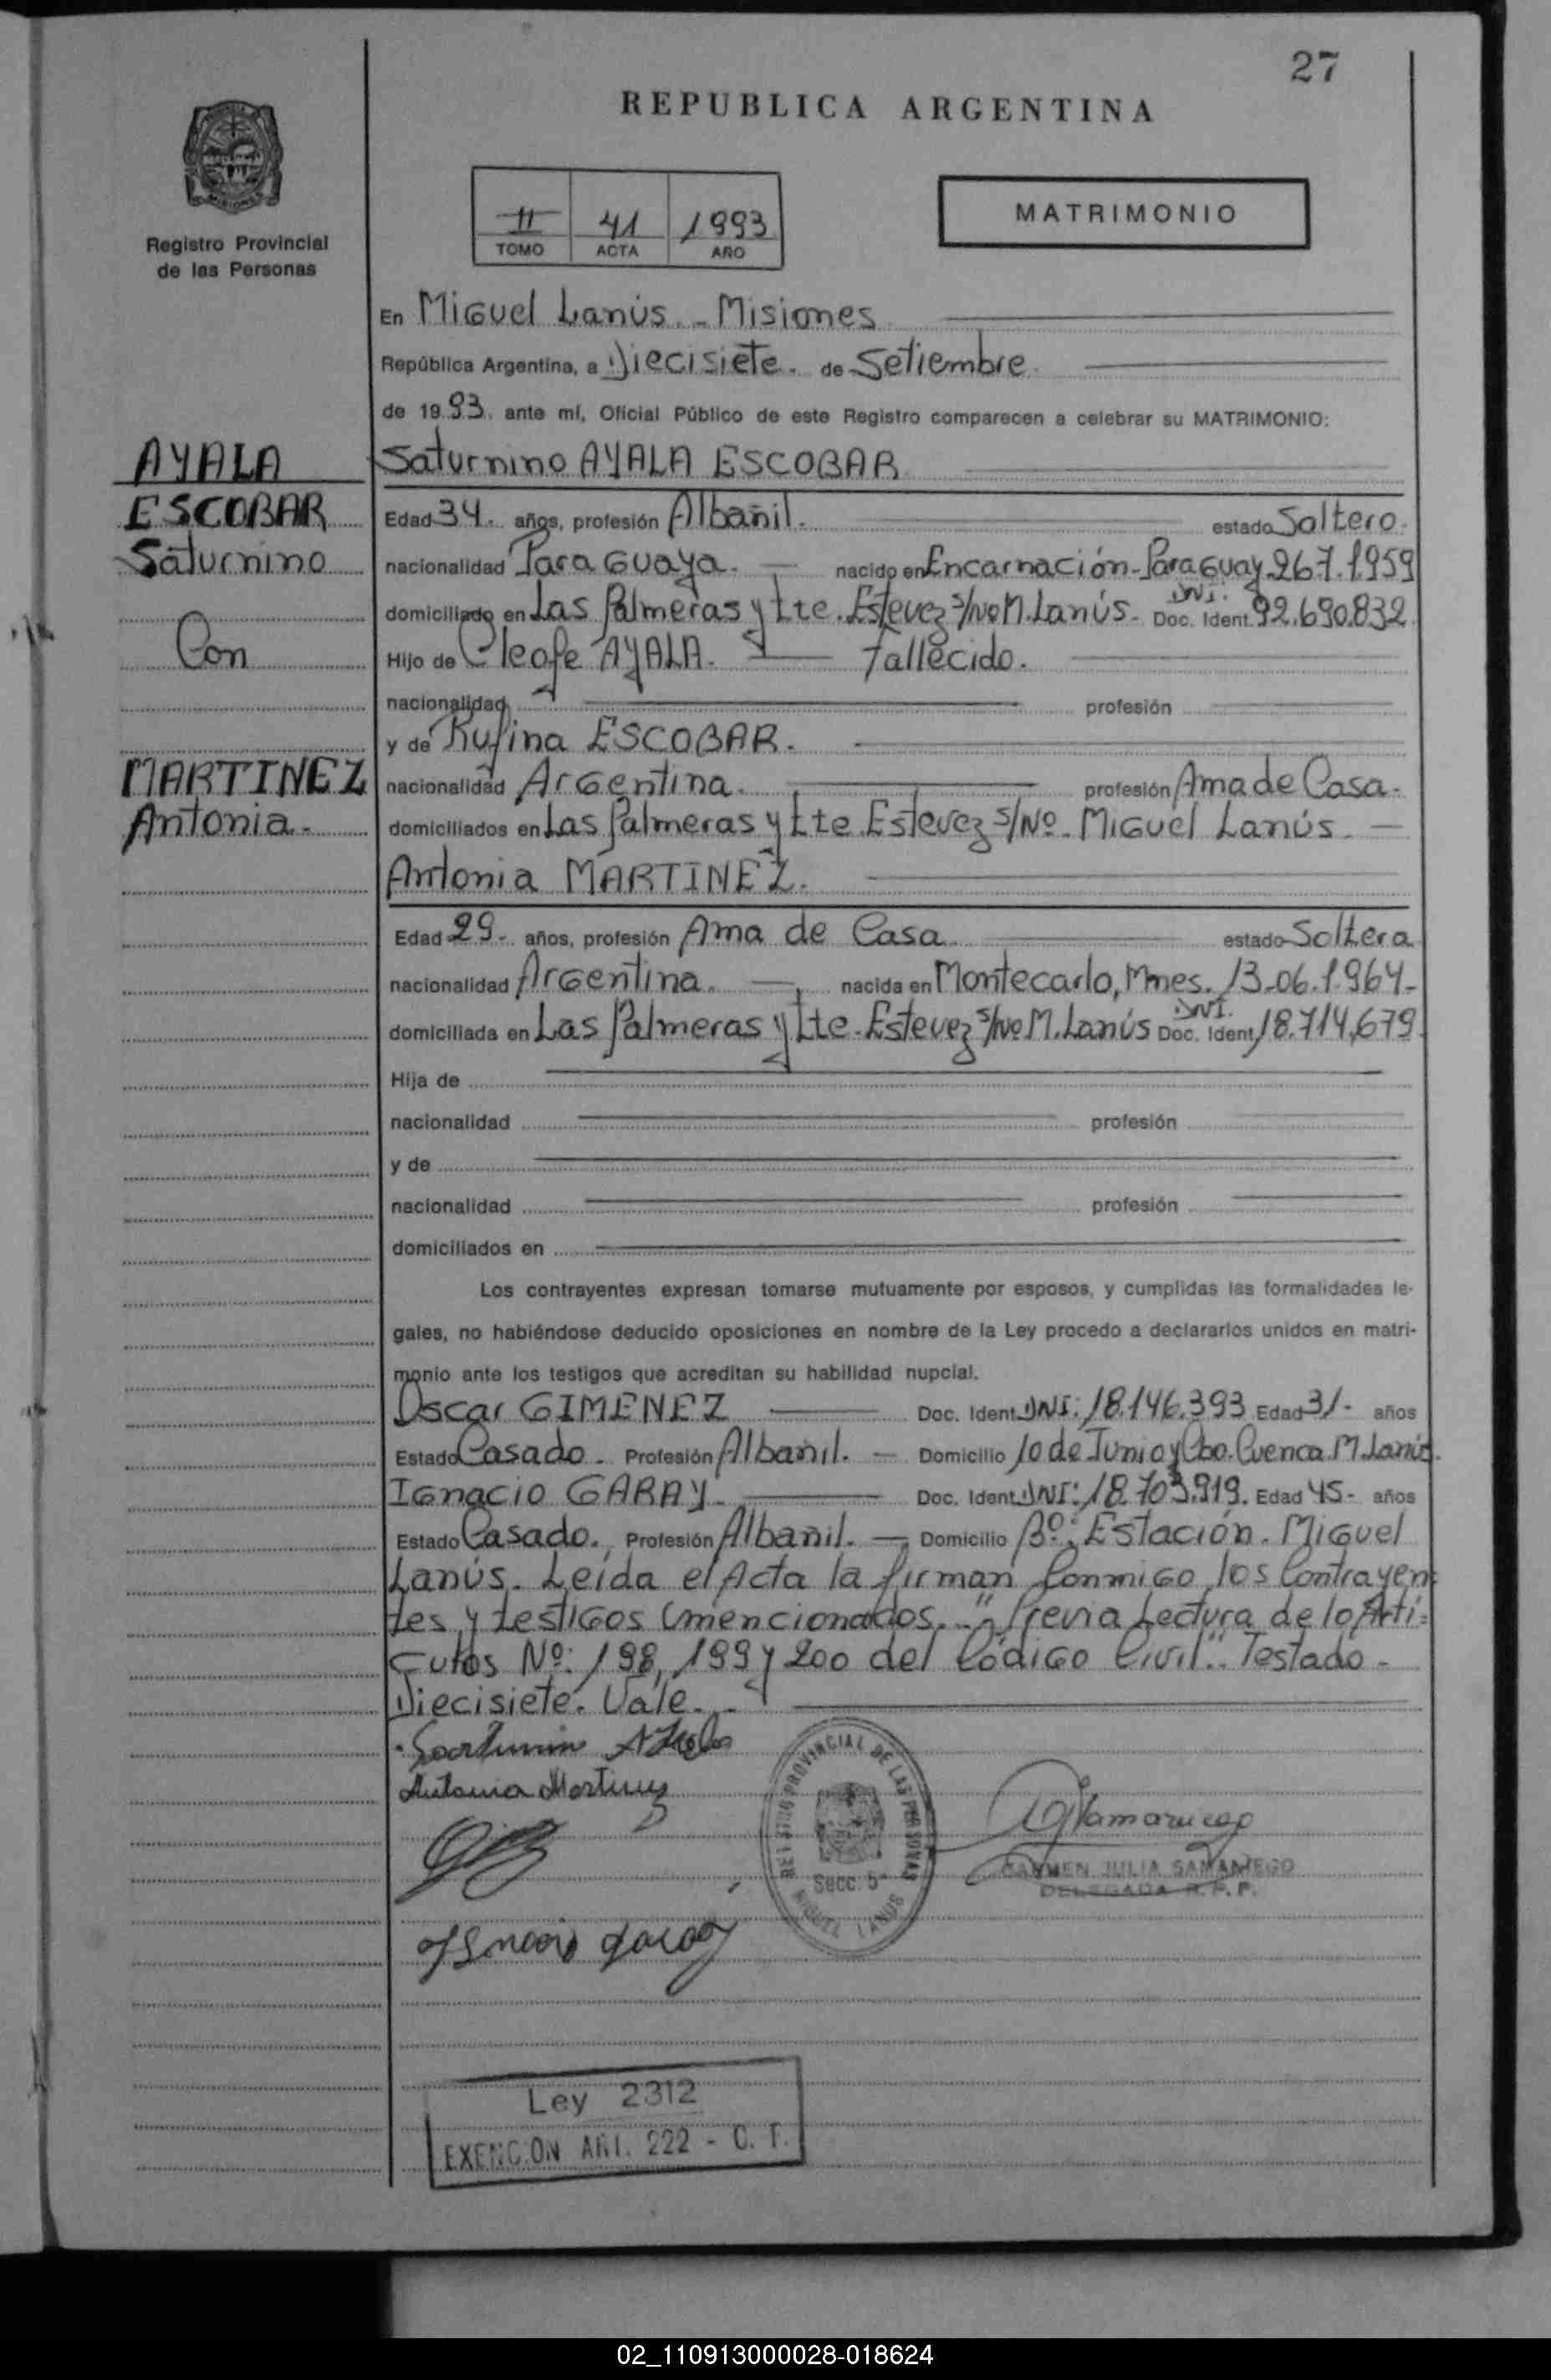 27
REPUBLICA ARGENTINA
Registro Provincial
de las Personas
II 41 1993
TOMO ACTA AÑO
MATRIMONIO
En Miguel Lanús - Misiones
República Argentina, a Diecisiete. de Setiembre
de 1993. ante mí, Oficial Público de este Registro comparecen a celebrar su MATRIMONIO:
AYALA
ESCOBAR
Saturnino
Con
MARTINEZ
Antonia.-
Saturnino AYALA ESCOBAR
Edad 34. años, profesión Albañil. estado Soltero.
nacionalidad Paraguaya. nacido en Encarnación-Paraguay 26.7.1959
domiciliado en Las Palmeras y Tte. Estevez s/Nº M. Lanús. Doc. Ident. DNI. 92.690.832
Hijo de Cleofe AYALA. Fallecido.
nacionalidad profesión
y de Rufina ESCOBAR.
nacionalidad Argentina. profesión Ama de Casa.
domiciliados en Las Palmeras y Tte. Estevez s/Nº. Miguel Lanús.
Antonia MARTINEZ.
Edad 29. años, profesión Ama de Casa estado Soltera
nacionalidad Argentina. nacida en Montecarlo, Mnes. 13-06.1.964.
domiciliada en Las Palmeras y Tte. Estevez s/Nº M. Lanús Doc. Ident. DNI. 18.714.679
Hija de
nacionalidad profesión
y de
nacionalidad profesión
domiciliados en
Los contrayentes expresan tomarse mutuamente por esposos, y cumplidas las formalidades le-
gales, no habiéndose deducido oposiciones en nombre de la Ley procedo a declararlos unidos en matri-
monio ante los testigos que acreditan su habilidad nupcial.
Oscar GIMENEZ Doc. Ident. DNI: 18.146.393 Edad 31- años
Estado Casado. Profesión Albañil. Domicilio 10 de Junio y Cbo. Cuenca M. Lanús.
Ignacio GARAY Doc. Ident. DNI: 18.703.919. Edad 45- años
Estado Casado. Profesión Albañil. Domicilio Bº: Estación. Miguel
Lanús. Leida el Acta la firman Conmigo los Contrayen
tes y testigos mencionados. "Previa Lectura de lo Artí=
culos Nº: 198, 199 y 200 del Código Civil". Testado-
Diecisiete. Vale.
Antonia Martinez
REGISTRO PROVINCIAL DE LAS PERSONAS
Secc. 5ª
MIGUEL LANUS
CARMEN JULIA SAMANIEGO
DELEGADA R.P.P.
Ignacio Garay
Ley 2312
EXENCION ART. 222 - C. F.
02_110913000028-018624